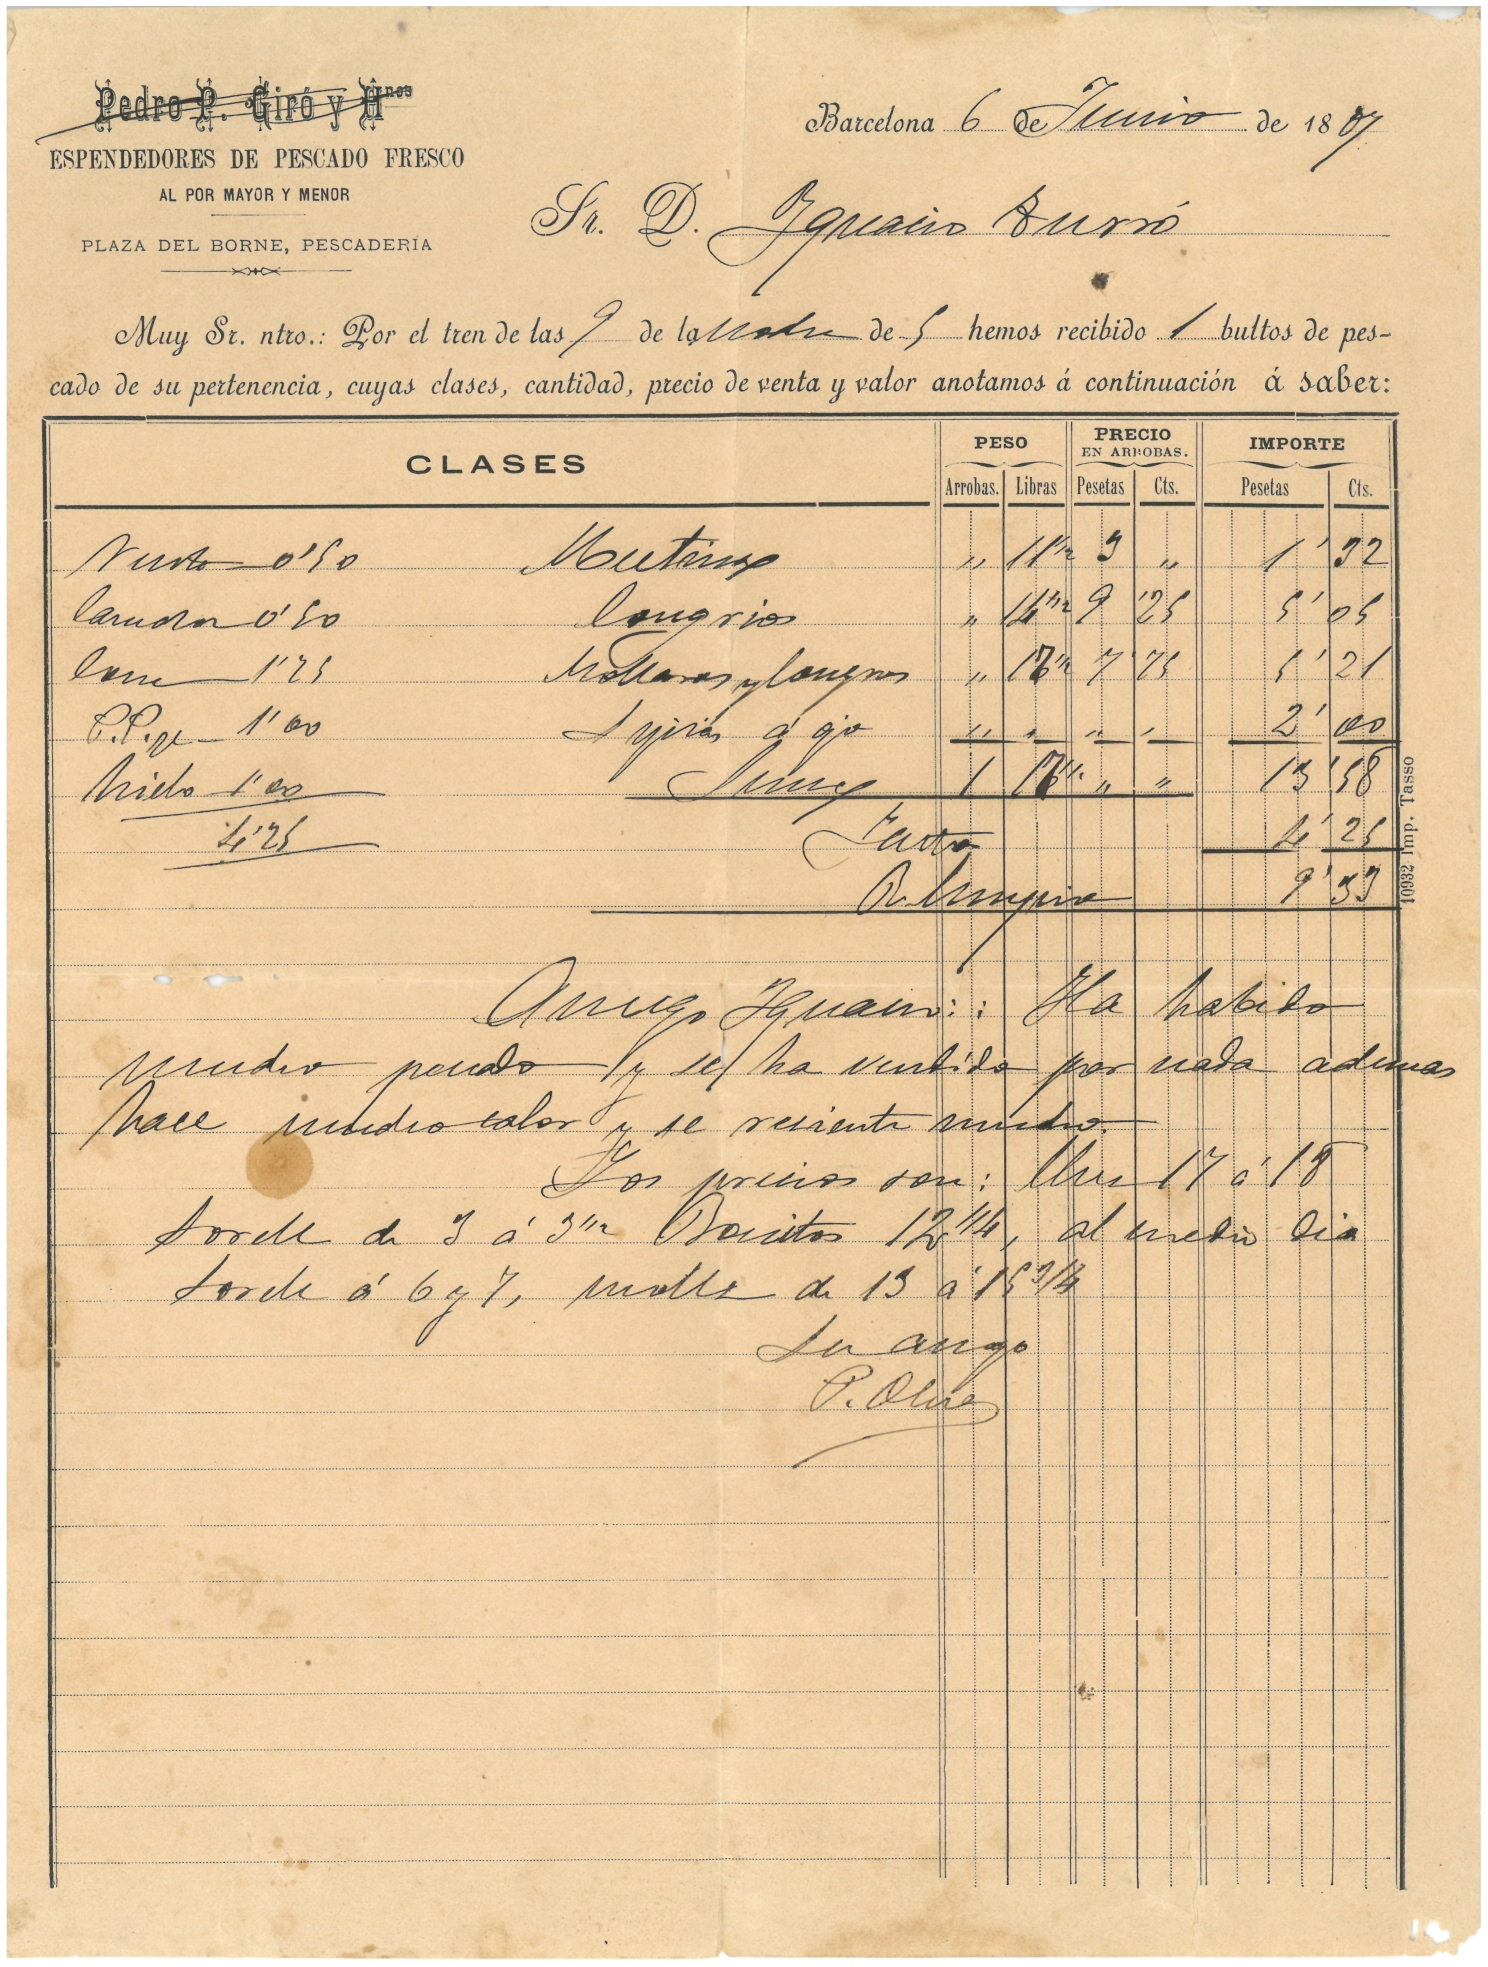 Pedro P. Giró y Hnos
ESPENDEDORES DE PESCADO FRESCO
AL POR MAYOR Y MENOR
PLAZA DEL BORNE, PESCADERÍA
Barcelona 6 de Junio de 18
Sr. D. Ignacio
Muy Sr. ntro.: Por el tren de las 9 de la de 5 hemos recibido 1 bultos de pes-
cado de su pertenencia, cuyas clases, cantidad, precio de venta y valor anotamos á continuación á saber:
CLASES PESO PRECIO EN ARROBAS. IMPORTE
Arrobas. Libras Pesetas Cts. Pesetas Cts.
0'50 „ 11 1/2 3 „ 1' 32
0'50 Congrios „ 14 1/2 9 '25 5' 05
1'25 Molleras y Congrios „ 7 '75 5' 21
1'00 á ojo „ „ „ „ 2' 00
hielo 1'00 Suma 1 „ „ 13 '58
4'25 4' 25
R. limpio 9' 33
10932 Imp. Tasso
Amigo Ignacio: Ha habido
mucho pescado y se ha vendido por nada ademas
hace mucho calor y se resiente mucho.
Los precios son: 17 á 18
Sorell de 3 á 3 1/2 Bonitos 12 1/4, al medio dia
Sorell á 6 y 7, molls de 13 á 15 3/4
Su amigo
P.